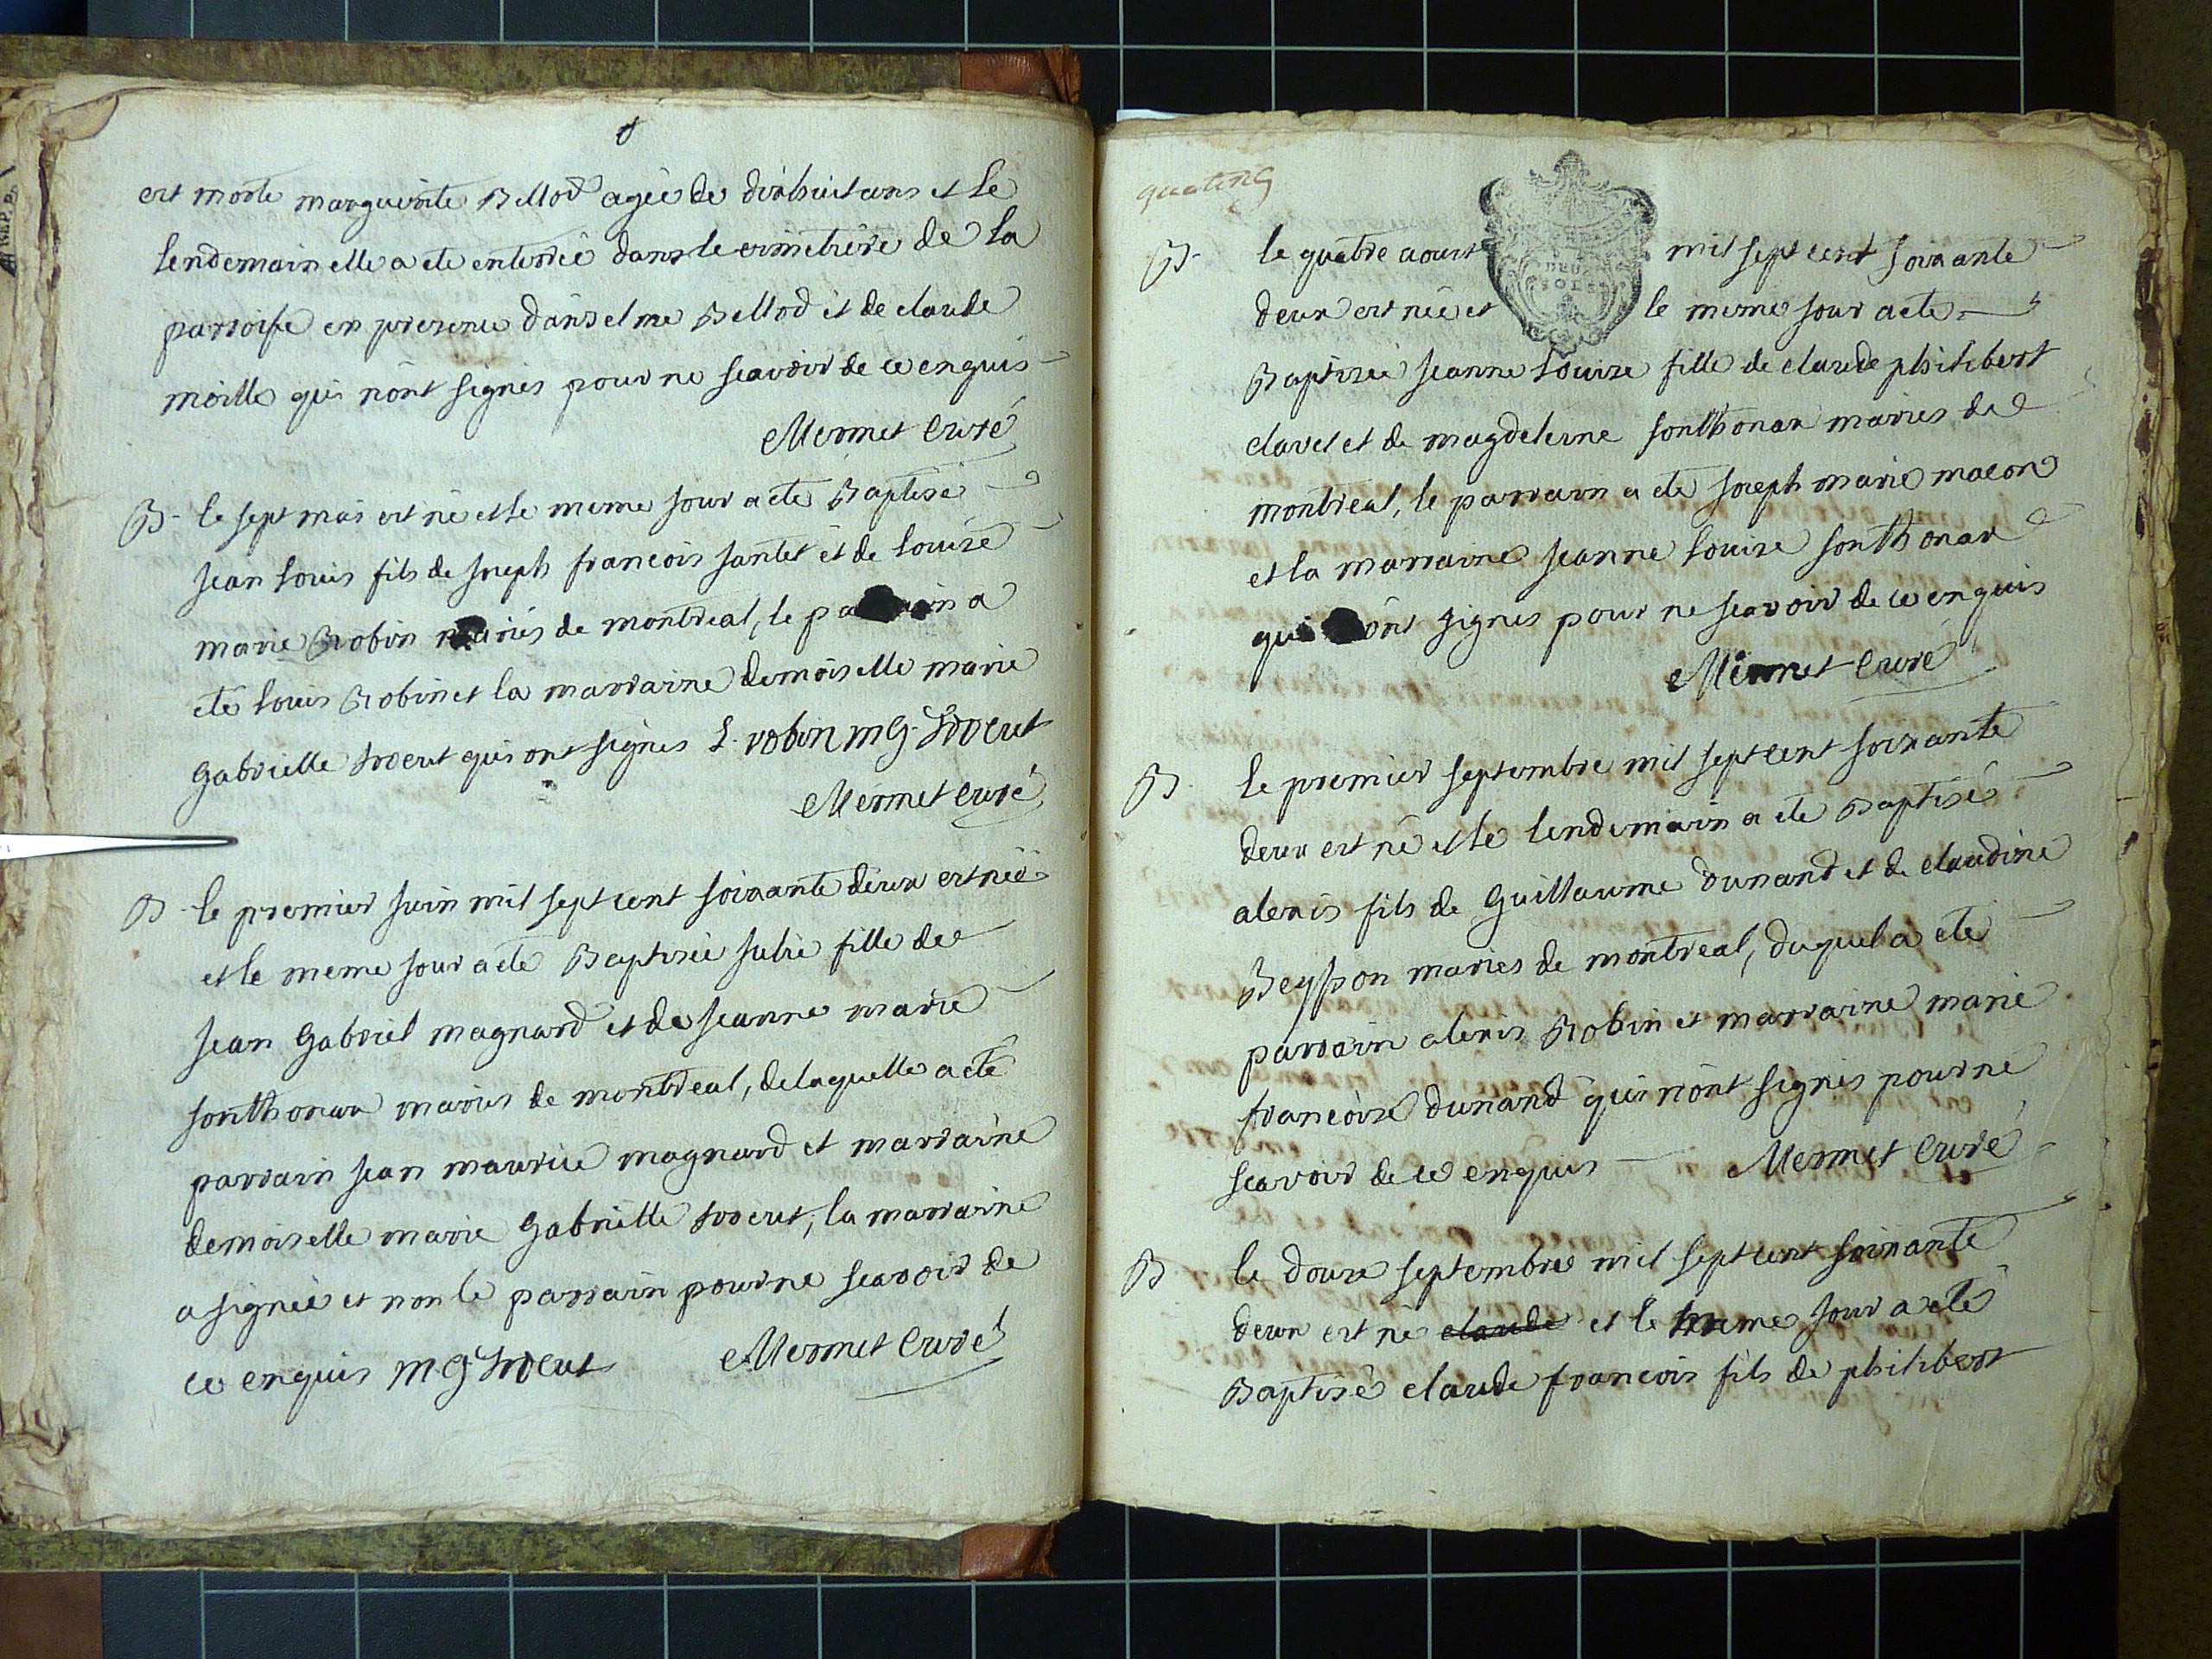 est morte marguerite Bellod agée de dixhuit ans et le
lendemain elle a eté enterrée dans le cimetiére de la
parroisse en presence d'anselme Bellod et de claude
moille qui n'ont signés pour ne scavoir de ce enquis
Mermet Curé
B. le sept mai est né et le meme jour a eté Baptisé
jean louis fils de joseph francois jantet et de louise
marie Robin mariés de montreal, le parrain a
eté louis Robin et la marraine demoiselle marie
gabrielle
qui ont signés L. robin
Mermet Curé
B. le premier juin mil sept cent soixante deux est née
et le meme jour a eté Baptisée julie fille de
jean gabriel magnard et de jeanne marie
sonthonax mariés de montreal, de laquelle a eté
parrain jean maurice magnard et marraine
demoiselle marie gabrielle
la marraine
a signée et non le parrain pour ne scavoir de
ce enquis
Mermet Curé
B. le quatre aoust mil sept cent soixante
deux est née et le meme jour a eté
Baptisée jeanne louise fille de claude philibert
clavel et de magdeleine sonthonax mariés de
montreal, le parrain a eté joseph marie macon
et la marraine jeanne louise sonthonax
qui n'ont signés pour ne scavoir de ce enquis
Mermet Curé
B. le premier septembre mil sept cent soixante
deux est né et le lendemain a eté Baptisé
alexis fils de guillaume dunand et de claudine
Beysson mariés de montreal, duquel a eté
parrain alexis Robin et marraine marie
francoise dunand qui n'ont signés pour ne
scavoir de ce enquis Mermet Curé
B le douze septembre mil sept cent soixante
deux est né claude et le meme jour a eté
Baptisé claude francois fils de philibert
DEUX
SOLS